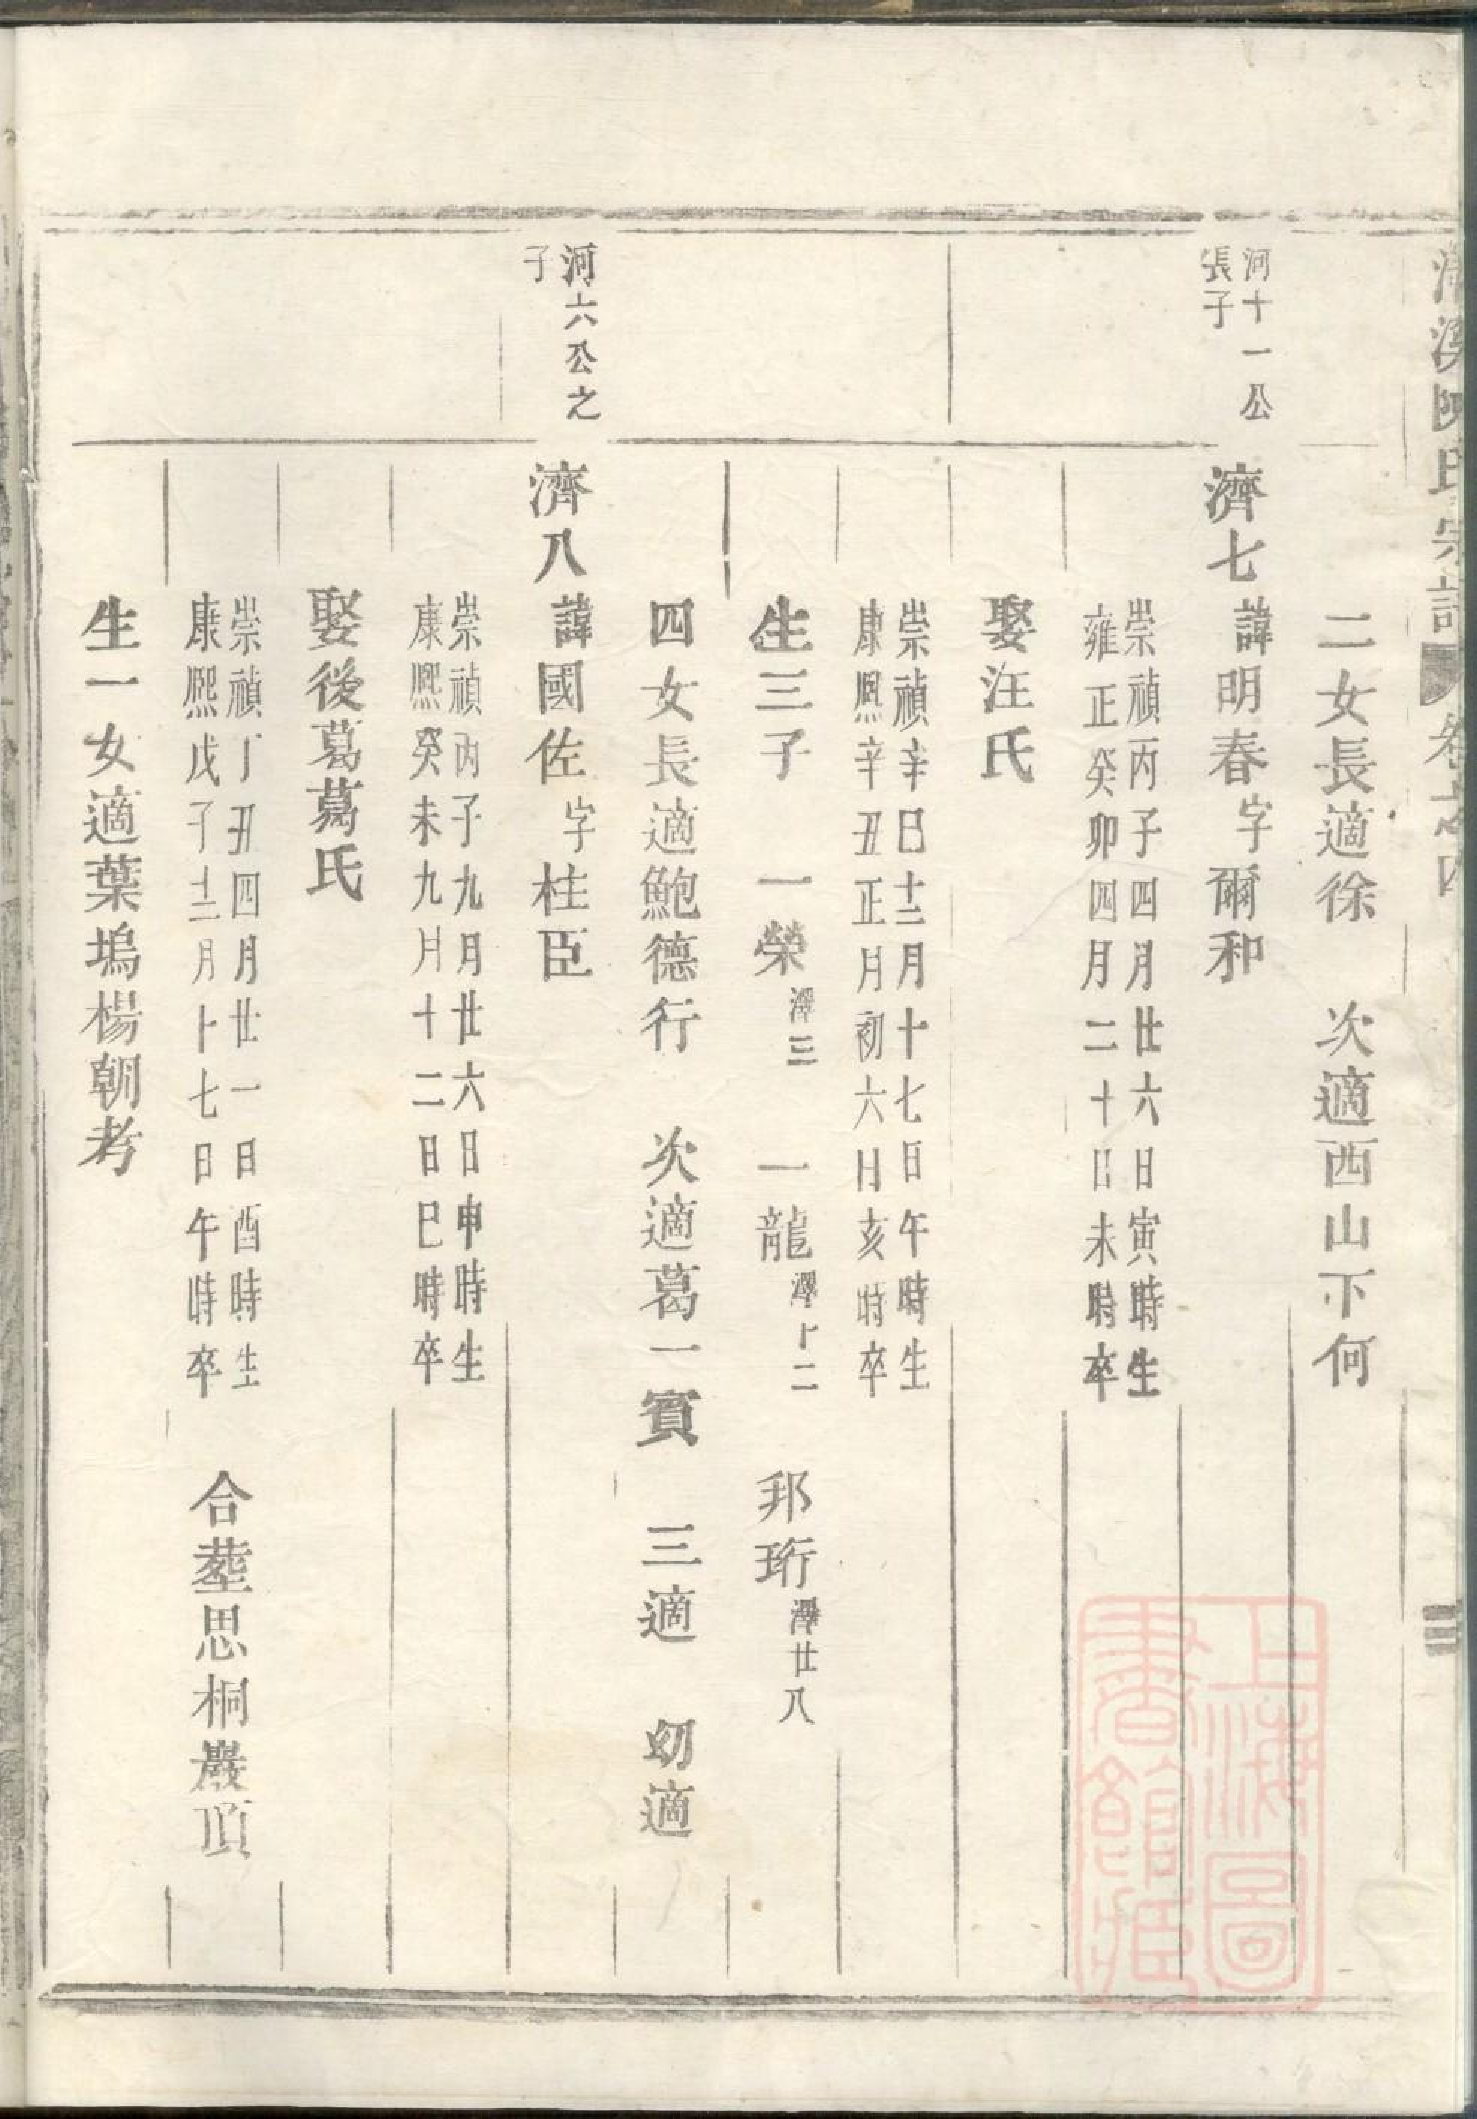 溪陳氏宗譜 卷之四
二女長適徐 次適西山下何
河十一公
張子
濟七 諱明春字爾和
崇禎丙子四月廿六日寅時生
雍正癸卯四月二十日未時卒
娶汪氏
崇禎辛巳十二月十七日午時生
康熙辛丑正月初六日亥時卒
生三子 一榮澤三 一龍澤十二 邦珩澤廿八
四女長適鮑德行 次適葛一賓 三適 幼適
河六公之
子
濟八 諱國佐字柱臣
崇禎丙子九月廿六日申時生
康熙癸未九月十二日巳時卒
娶後葛葛氏
崇禎丁丑四月廿一日酉時生
康熙戊子十二月十七日午時卒
合塟思桐巖頂
生一女適葉塢楊朝考
上海圖
書館藏